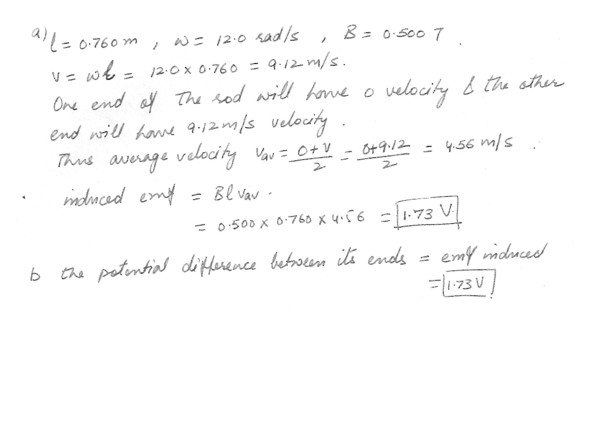 a) l = 0.760 m , ω = 12.0 rad/s , B = 0.500 T .
v = ωl = 12.0 x 0.760 = 9.12 m/s.
One end of The rod will have 0 velocity & the other
end will have 9.12 m/s velocity .
Thus average velocity Vav = 0+V/2 = 0+9.12/2 = 4.56 m/s .
induced emf = Bl Vav .
= 0.500 x 0.760 x 4.56 = 1.73 V
b the potential difference between its ends = emf induced
= 1.73 V